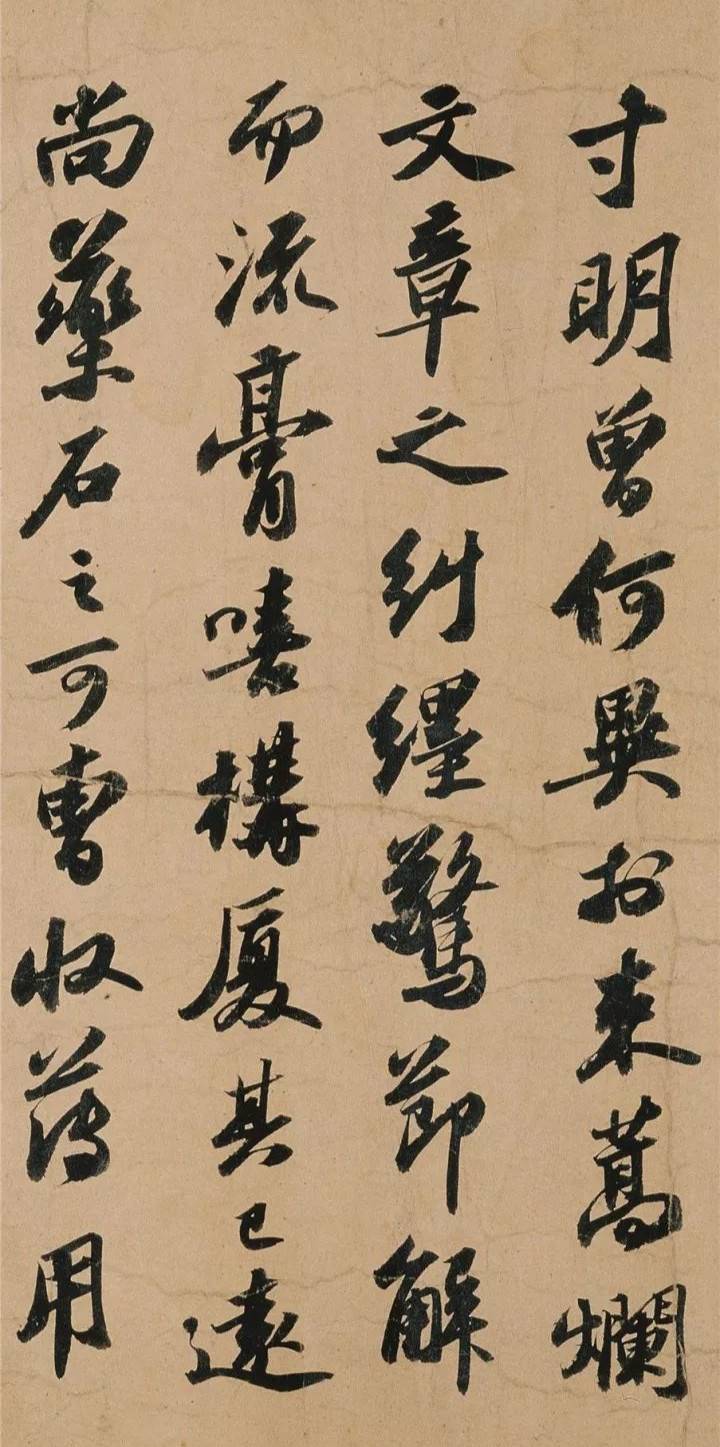 寸明曾何異於束蒿爛
文章之糾纆驚節解
而流膏嘻構厦其已遠
尚藥石之可曹收薄用